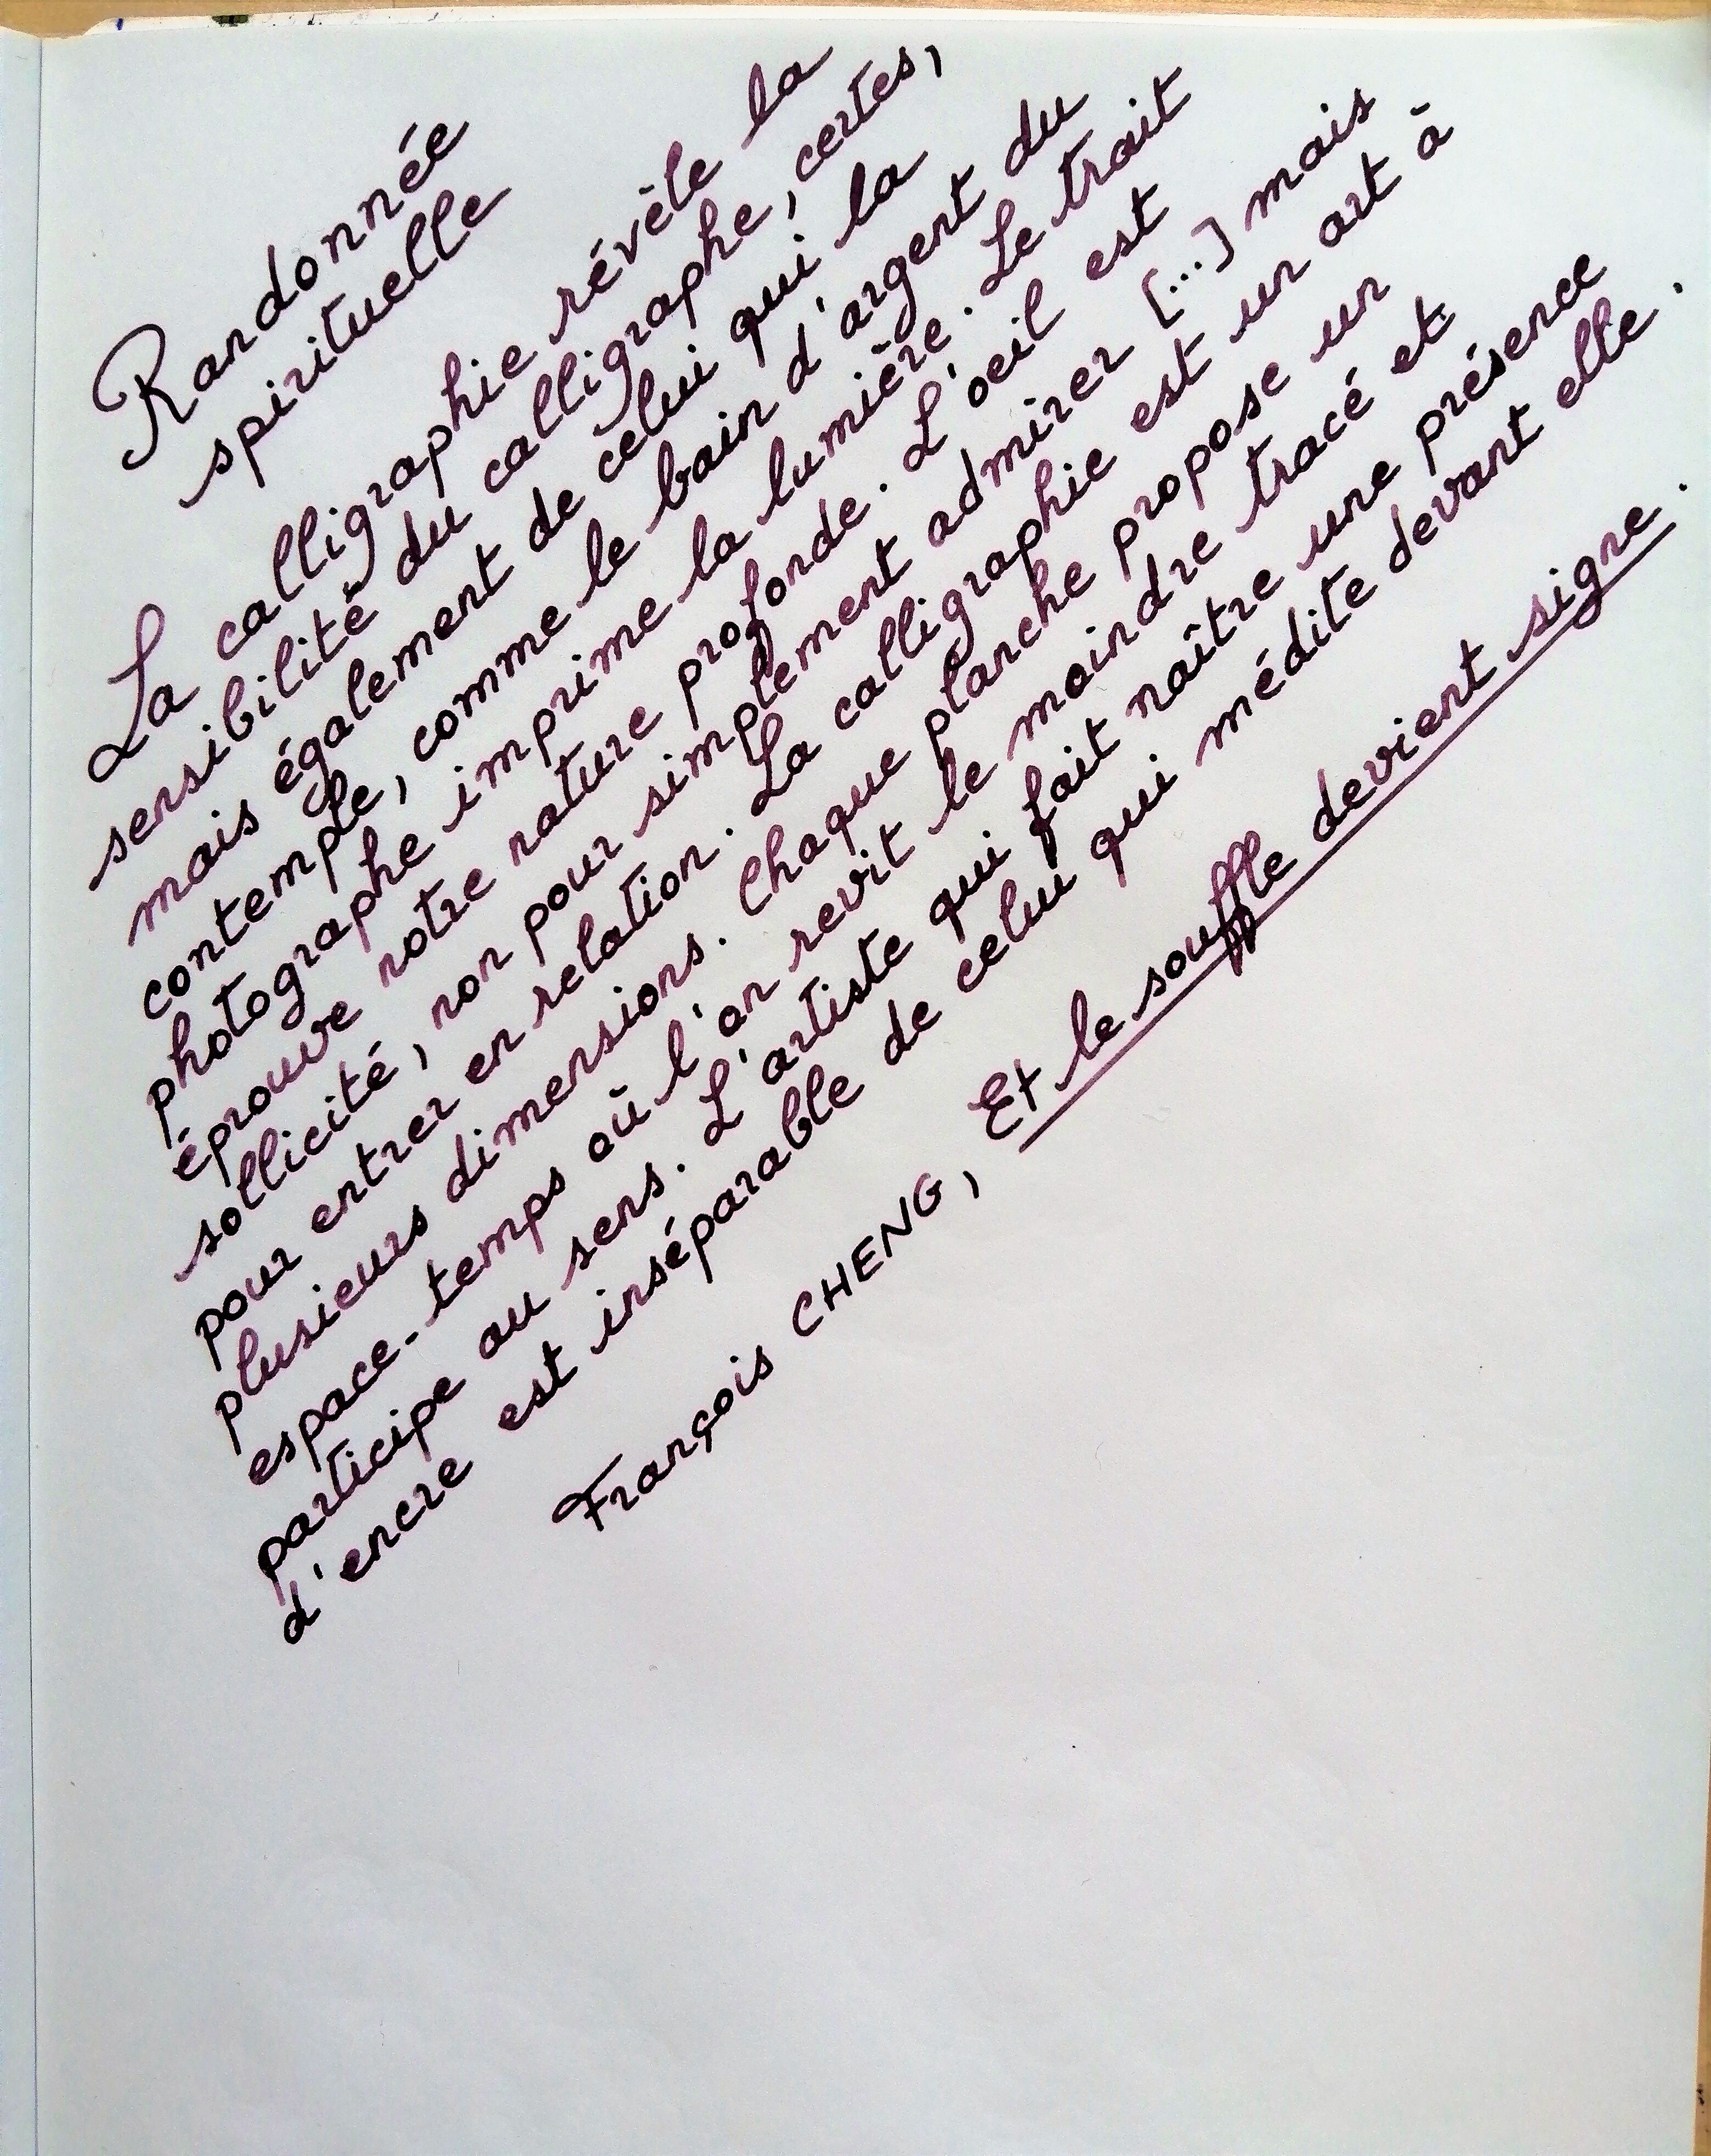 Randonnée
spirituelle
La calligraphie révèle la
sensibilité du calligraphe, certes,
mais également de celui qui la
contemple, comme le bain d'argent du
photographe imprime la lumière. Le trait
éprouve notre nature profonde. L'oeil est
sollicité, non pour simplement admirer [...] mais
pour entrer en relation. La calligraphie est un art à
plusieurs dimensions. Chaque planche propose un
espace-temps où l'on revit le moindre tracé et
participe au sens. L'artiste qui fait naître une présence
d'encre est inséparable de celui qui médite devant elle.
François CHENG, Et le souffle devient signe.